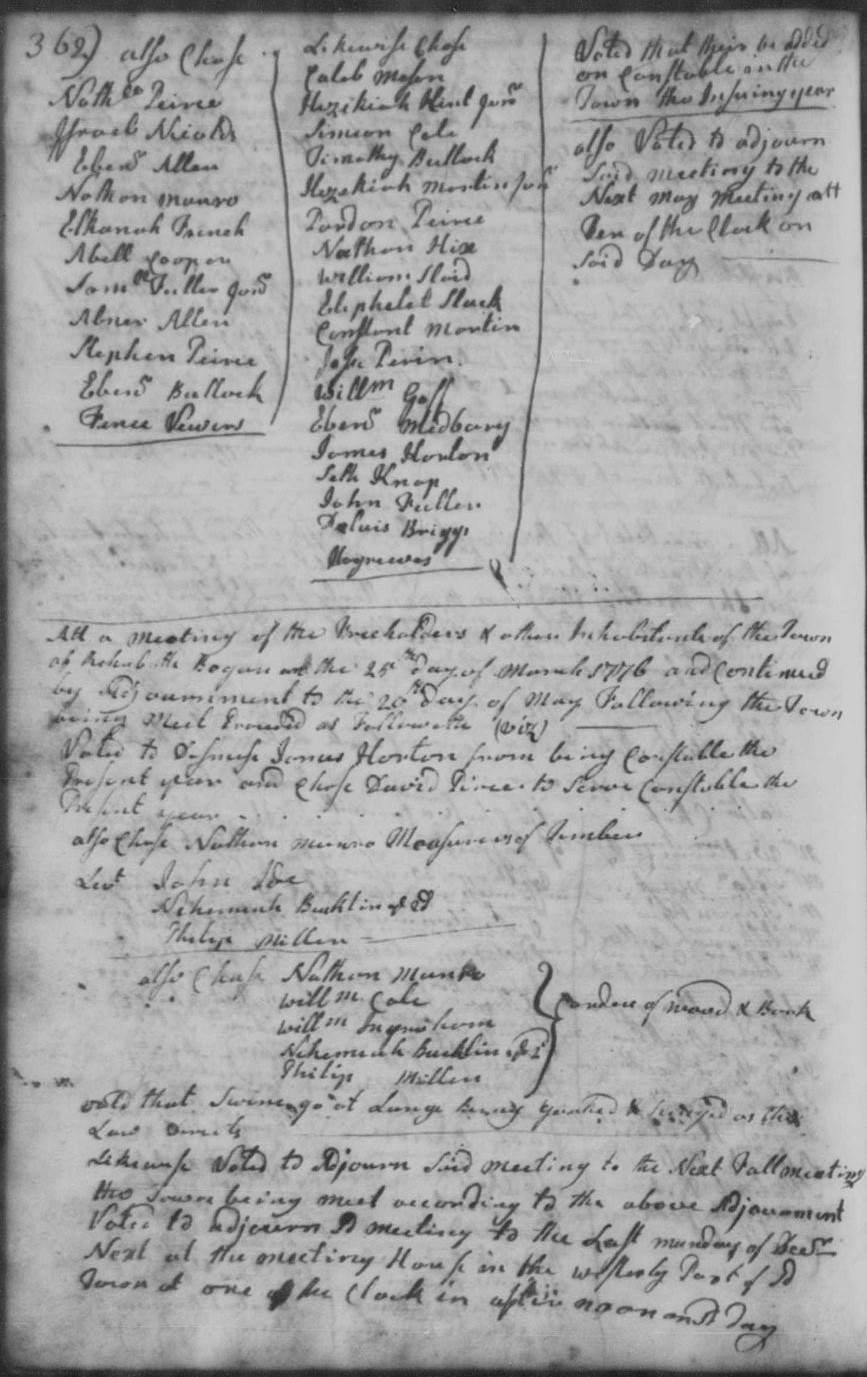 362) also Chose
Nathll Peirce
Israel Nicols
Ebenr Allen
Nathan munro
Elkanah French
Abell Cooper
Samll Fuller Junr
Abner Allen
Stephen Peirce
Ebenr Bullock
Fence Vewers
Likewise Chose
Caleb Mason
Hezikiah Hunt Junr
Simeon Cole
Timothy Bullock
Hezekiah Martin Junr
Pardon Peirce
Nathan Hix
William Slaid
Eliphelet Slack
Constant Martin
Josh Perin
Willm Goff
Ebenr Medbary
James Horton
Seth Knap
John Fuller
Briggs
Hogreeves
Voted that their be added
on Constable in the
Town the Insuing year
also Voted to adjourn
Said meeting to the
Next may meeting att
Ten of the Clock on
Said Day
Att a meeting of the Freeholders & other Inhabitants of the Town
of Rehoboth Began on the 25th day of March 1776 and Continued
by Adjournment to the 20th Day of May Following the Town
being meet Proceded as Followeth (viz)
Voted to Dismiss James Horton from being Constable the
Present year and Chose David Peirce to Serve Constable the
Present year
also Chose Nathan munro Measurer of Timber
Leut John Ide
Nehemiah Bucklin 2d
Philip Miller
also Chose Nathan Munro
Willm Cole
Willm Ingraham
Nehemiah Bucklin 2d
Philip Miller
Corders of wood & Bark
voted that Swine go at Large being yoaked & Ringed as the
Law Directs
Likewise Voted to Adjourn Said meeting to the Next Fall meeting
the Town being meet according to the above Adjournment
Voted to adjourn Sd meeting to the Last munday of Decr
Next at the meeting House in the westerly Part of Sd
Town at one of the Clock in after noon on Sd Day